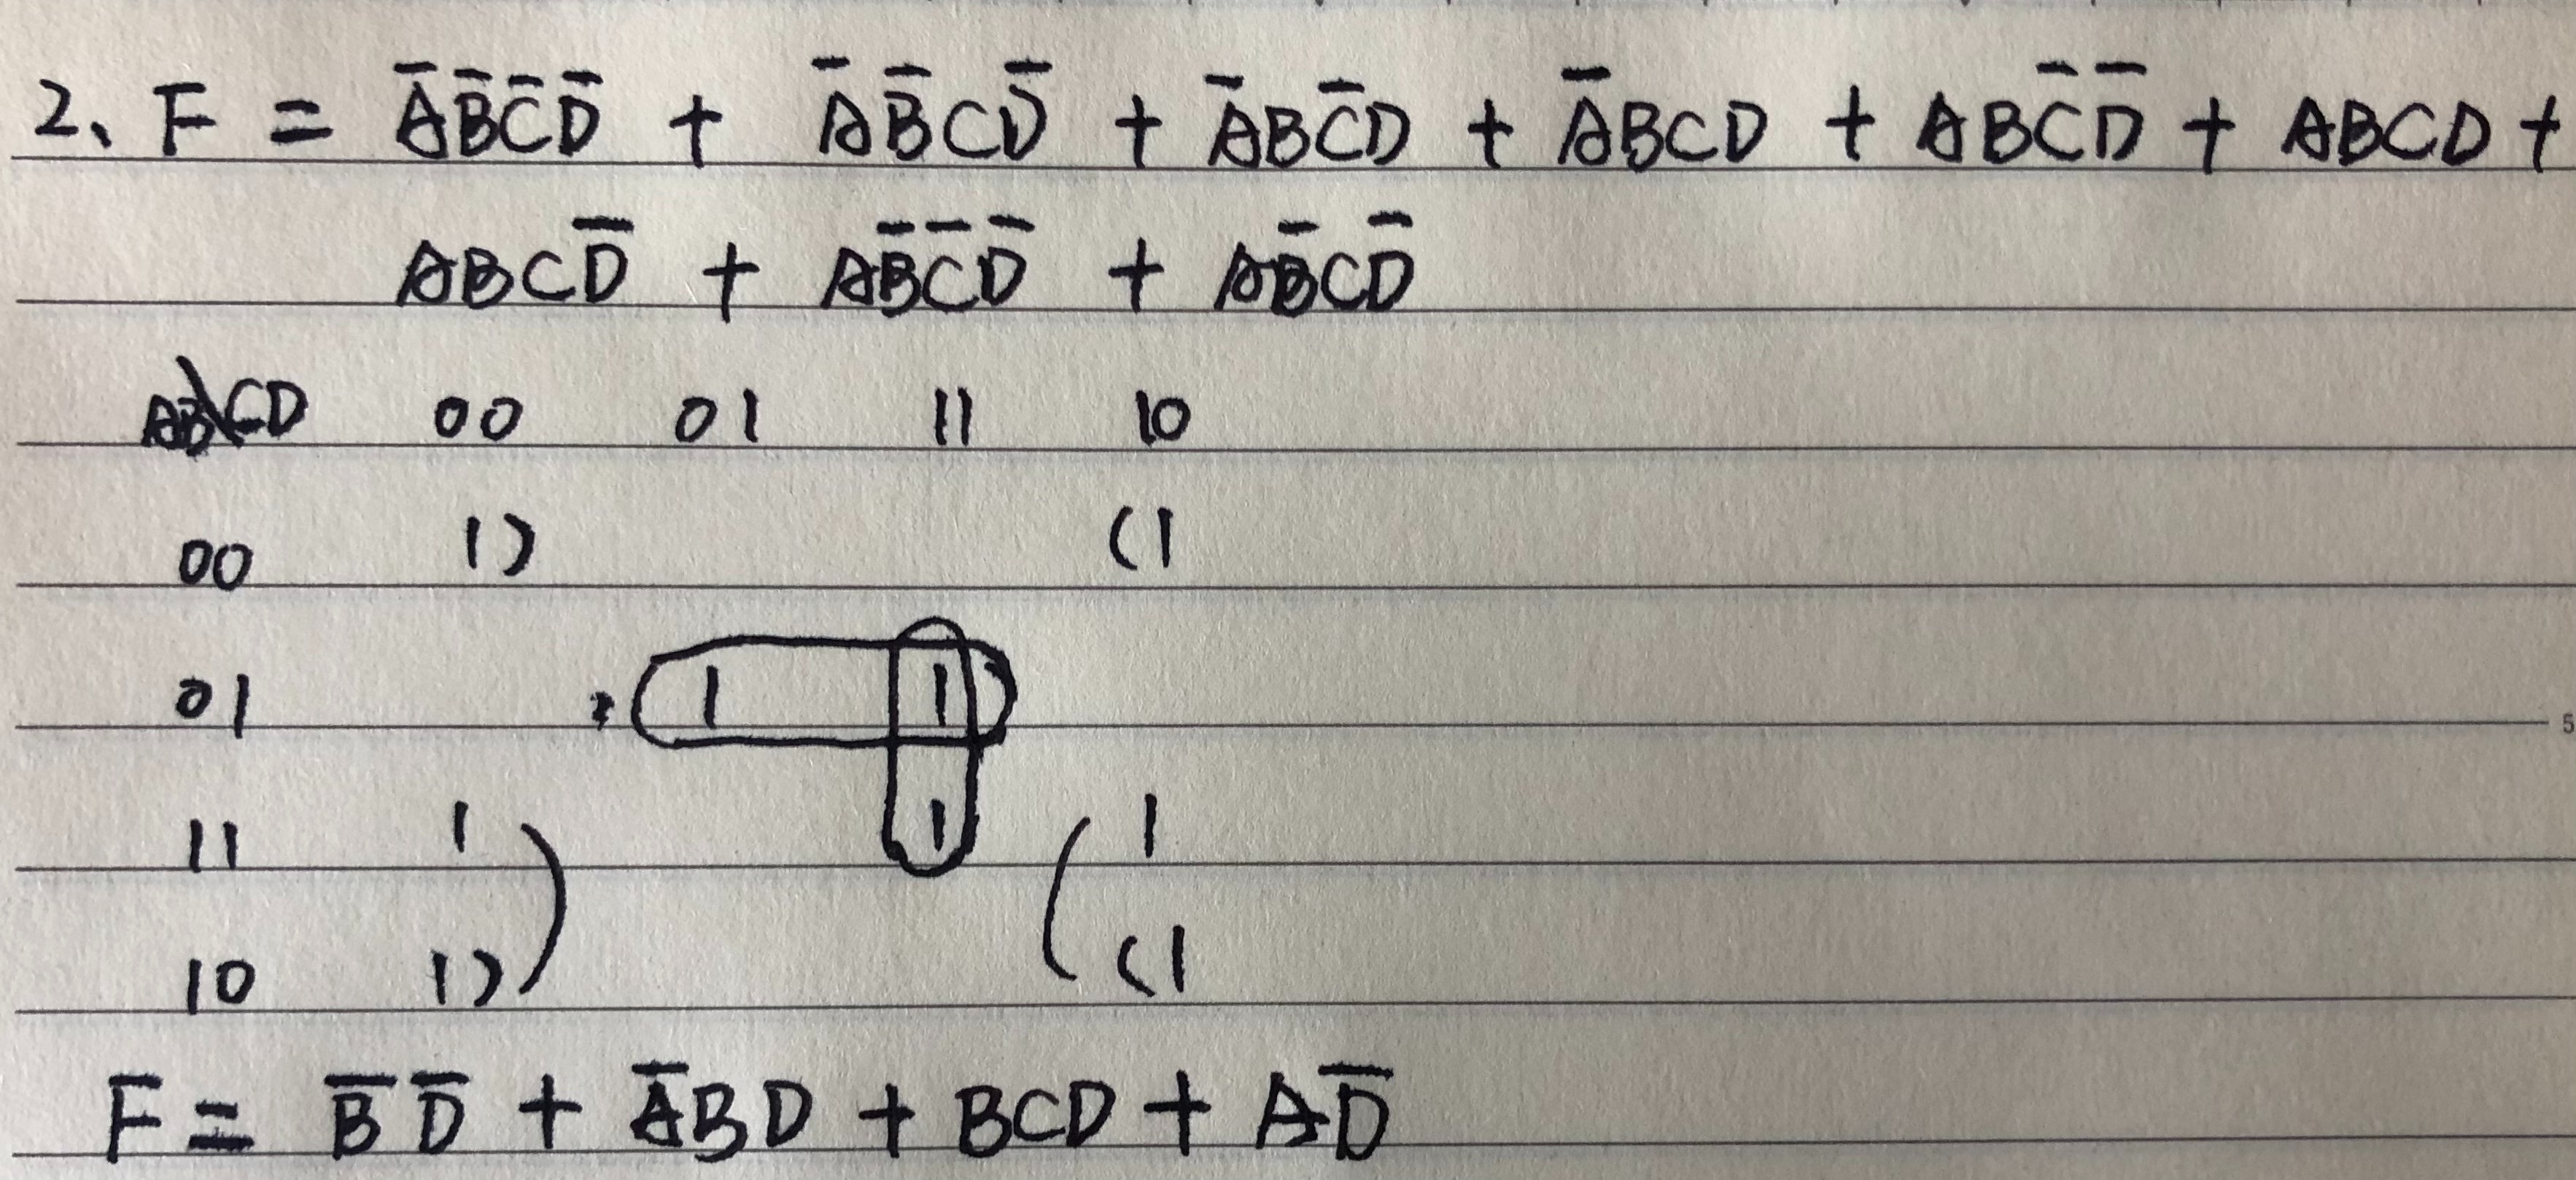 2、F = A̅B̅C̅D̅ + A̅B̅CD̅ + A̅BC̅D + A̅BCD + ABC̅D̅ + ABCD +
ABCD̅ + AB̅C̅D̅ + AB̅CD̅
AB\CD 00 01 11 10
00 1) (1
01 1 1
11 1 1 1
10 1) (1
F = B̅D̅ + A̅BD + BCD + AD̅
5